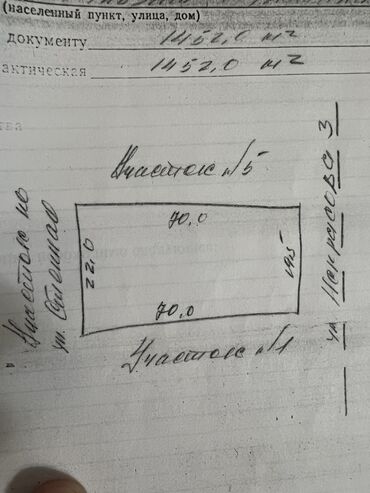 (населенный пункт, улица, дом)
документу 1452,0 м2
актическая 1452,0 м2
Участок №5
70,0
22,0
19,5
70,0
Участок №1
Участок по
ул. Степная
ул Некрасова 3